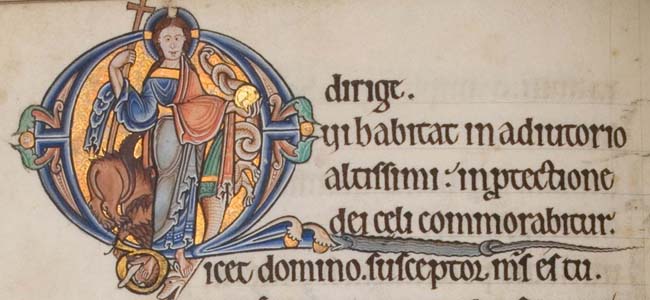 dirige.
Qui habitat in adiutorio
altissimi : in ꝓtectione
dei celi commorabitur.
Dicet domino. susceptor m̅s es tu.